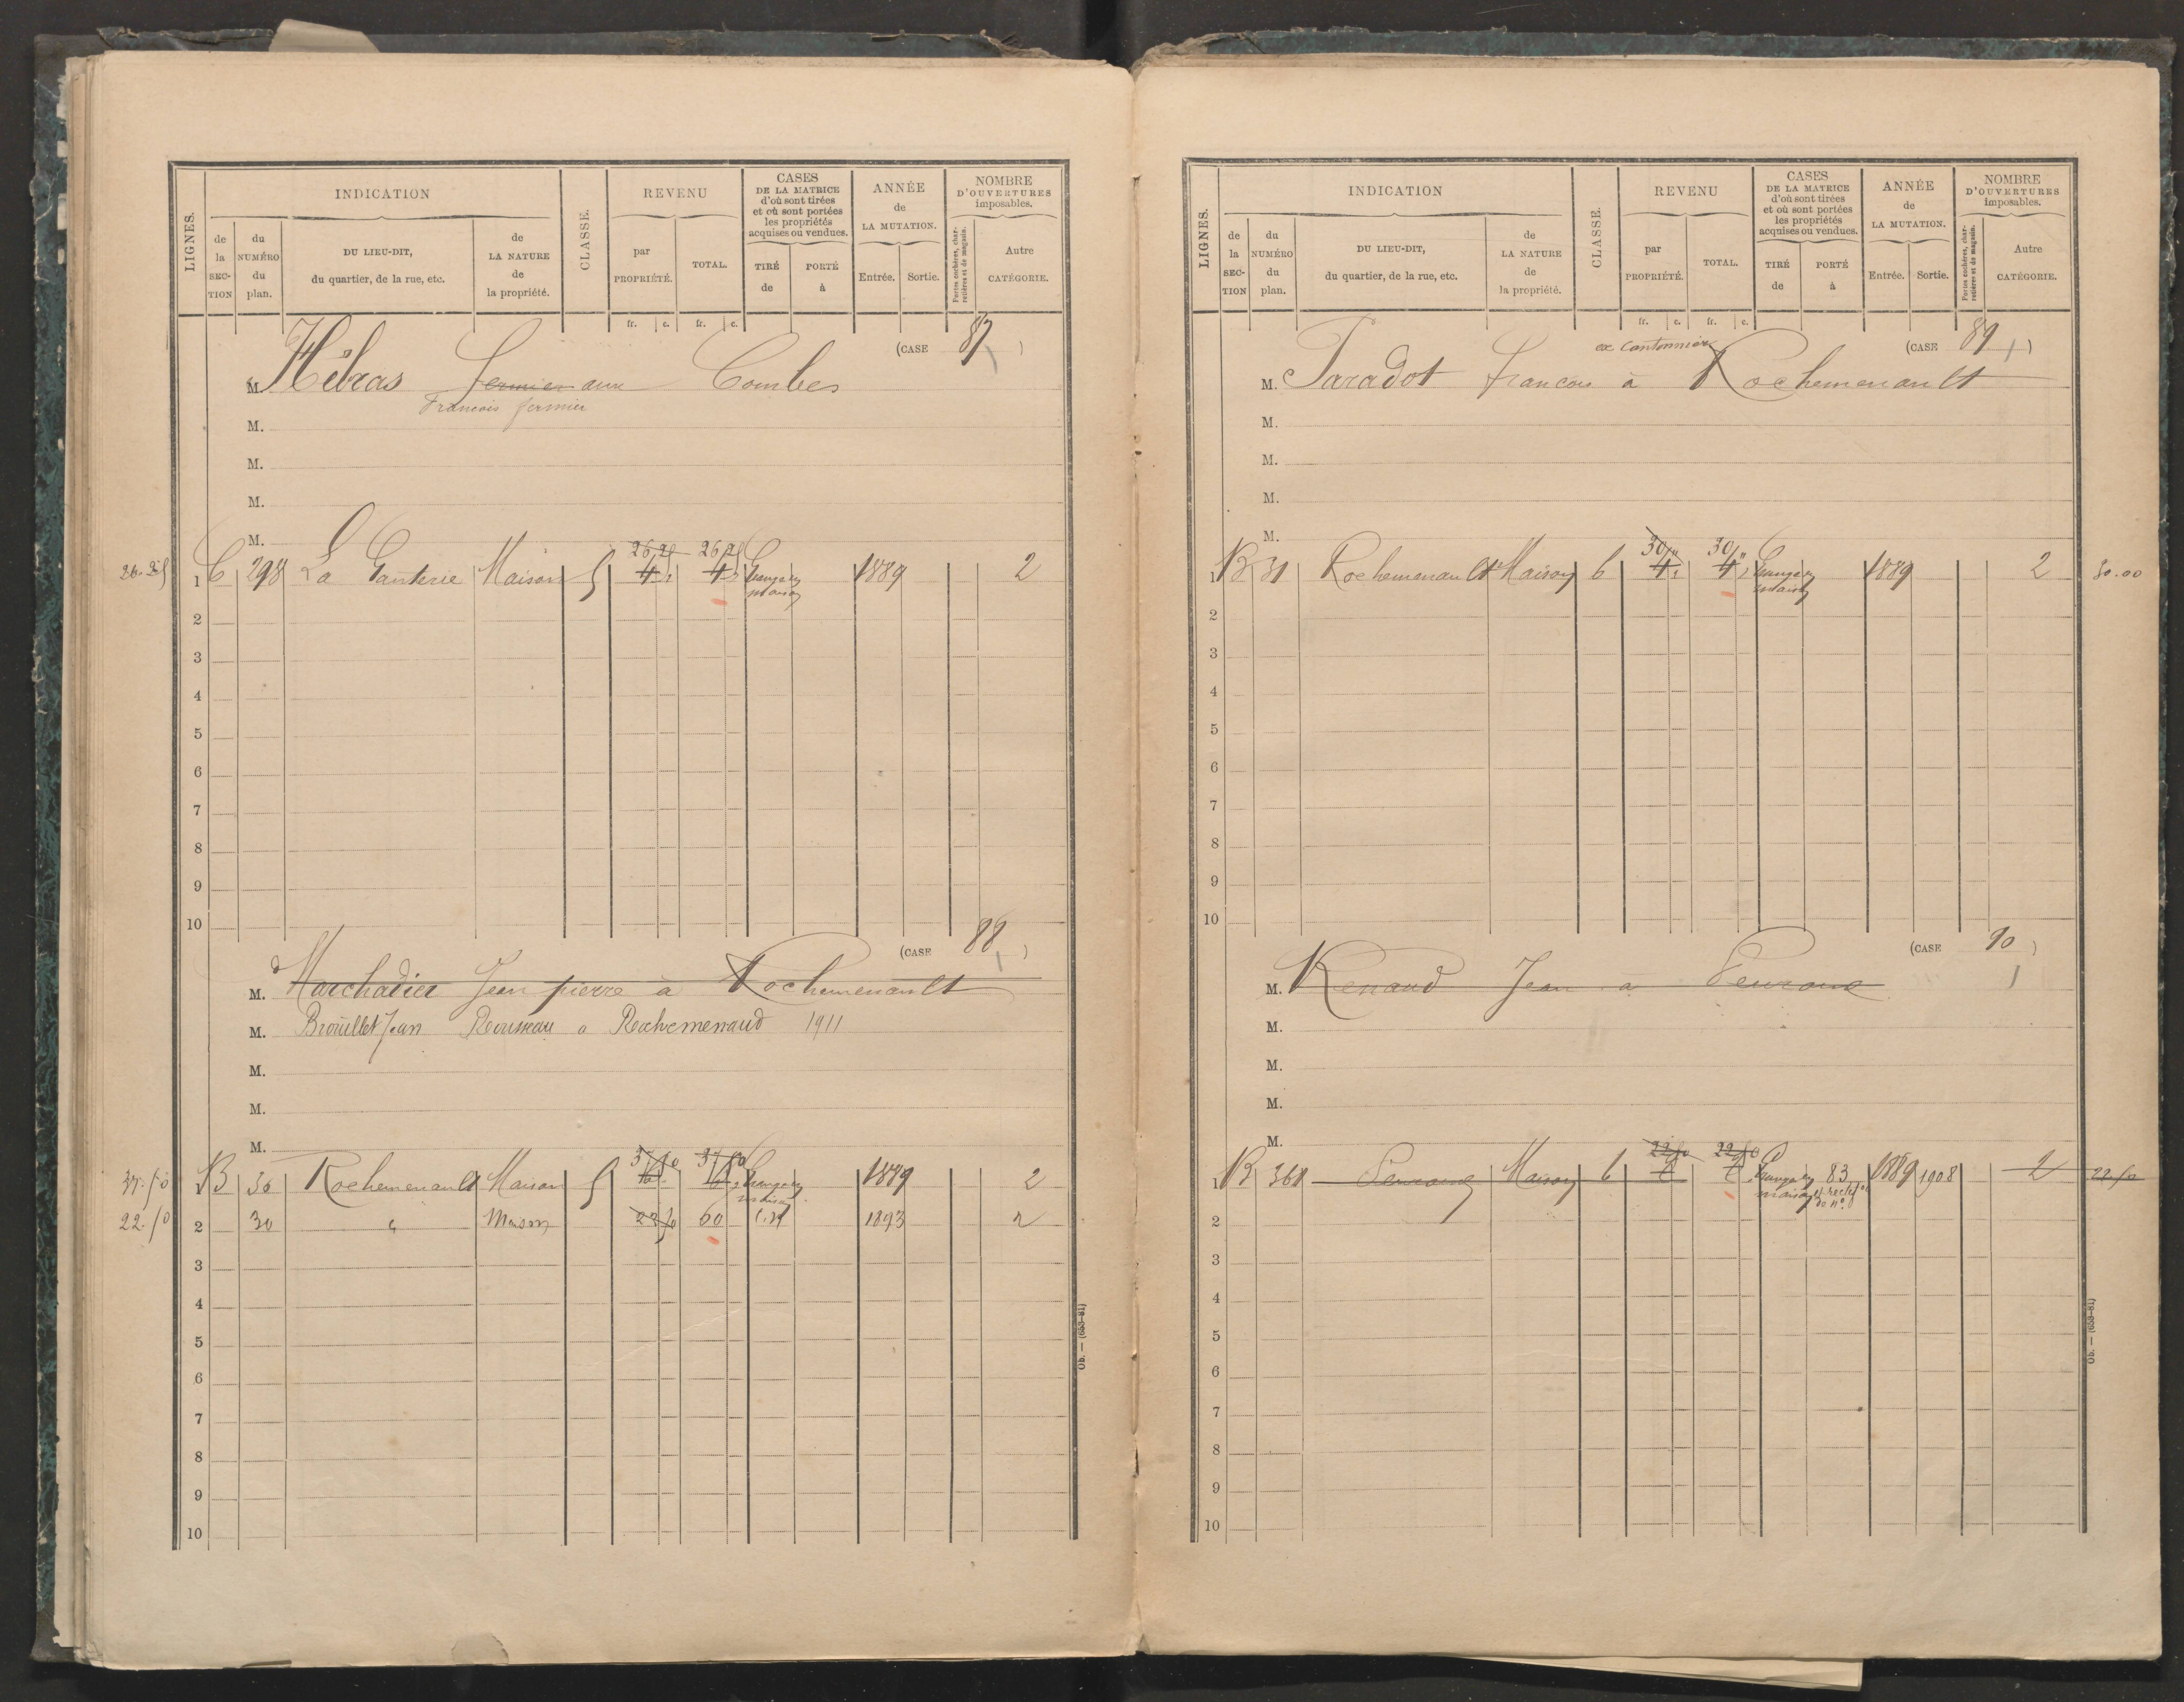 LIGNES.
INDICATION
CLASSE.
REVENU
CASES
DE LA MATRICE
d'où sont tirées
et où sont portées
les propriétés
acquises ou vendues.
ANNÉE
de
LA MUTATION.
NOMBRE
D'OUVERTURES
imposables.
de la SECTION
du NUMÉRO du plan.
DU LIEU-DIT,
du quartier, de la rue, etc.
de LA NATURE de la propriété.
par PROPRIÉTÉ.
TOTAL.
TIRÉ de
PORTÉ à
Entrée.
Sortie.
Portes cochères, charretières et de magasin.
Autre CATÉGORIE.
fr. c. fr. c.
(CASE 87)
M. Hébras fermier aux Combes
François fermier
M.
M.
M.
M.
26.25 1 C 298 La Ganterie Maison 5 26 25 26 25 1889 2
maison
2
3
4
5
6
7
8
9
10
(CASE 88)
M. Marchadier Jean pierre à Rochemenault
M. Brouillet Jean Rousseau a Rochemenaud 1911
M.
M.
M.
37.50 1 B 30 Rochemenault Maison 5 37 50 37 50 1889 2
maison
22.50 2 30 " Maison 5 22 50 60 C.N 1893 2
3
4
5
6
7
8
9
10
Ob. — (653-81)
LIGNES.
INDICATION
CLASSE.
REVENU
CASES
DE LA MATRICE
d'où sont tirées
et où sont portées
les propriétés
acquises ou vendues.
ANNÉE
de
LA MUTATION.
NOMBRE
D'OUVERTURES
imposables.
de la SECTION
du NUMÉRO du plan.
DU LIEU-DIT,
du quartier, de la rue, etc.
de LA NATURE de la propriété.
par PROPRIÉTÉ.
TOTAL.
TIRÉ de
PORTÉ à
Entrée.
Sortie.
Portes cochères, charretières et de magasin.
Autre CATÉGORIE.
fr. c. fr. c.
(CASE 89)
ex cantonnier
M. Paradot françois à Rochemenault
M.
M.
M.
M.
1 B 31 Rochemenault Maison 6 30 " 30 " 1889 2 30.00
maison
2
3
4
5
6
7
8
9
10
(CASE 90)
M. Renaud Jean a Peuroux
M.
M.
M.
M.
1 B 361 Peuroux Maison 6 22 50 22 50 83 1889 1908 2 22.50
maison
2
3
4
5
6
7
8
9
10
Ob. — (653-81)